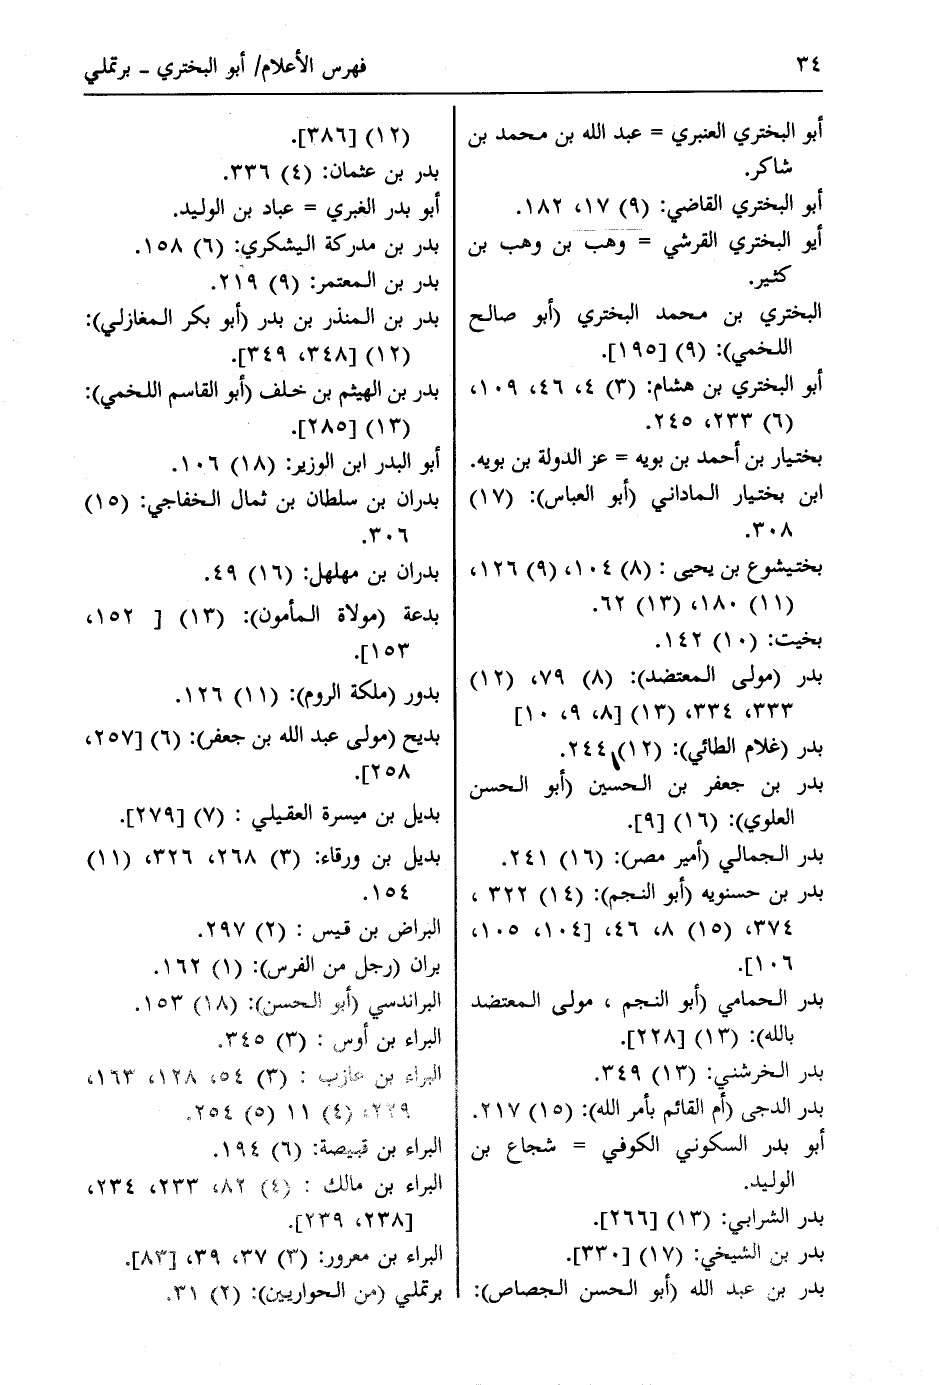 ٣٤
فهرس الأعلام/ أبو البختري ـ برتملي
أبو البختري العنبري = عبد الله بن محمد بن
شاكر.
أبو البختري القاضي: (٩) ١٧، ١٨٢.
أبو البختري القرشي = وهب بن وهب بن
كثير.
البختري بن محمد البختري (أبو صالح
اللخمي): (٩) [١٩٥].
أبو البختري بن هشام: (٣) ٤، ٤٦، ١٠٩،
(٦) ٢٣٣، ٢٤٥.
بختيار بن أحمد بن بويه = عز الدولة بن بويه.
ابن بختيار الماداني (أبو العباس): (١٧)
٣٠٨.
بختيشوع بن يحيى : (٨) ١٠٤، (٩) ١٢٦،
(١١) ١٨٠، (١٣) ٦٢.
بخيت: (١٠) ١٤٢.
بدر (مولى المعتضد): (٨) ٧٩، (١٢)
٣٣٣، ٣٣٤، (١٣) [٨، ٩، ١٠]
بدر (غلام الطائي): (١٢) ٢٤٤.
بدر بن جعفر بن الحسين (أبو الحسن
العلوي): (١٦) [٩].
بدر الجمالي (أمير مصر): (١٦) ٢٤١.
بدر بن حسنويه (أبو النجم): (١٤) ٣٢٢ ،
٣٧٤، (١٥) ٨، ٤٦، [١٠٤، ١٠٥،
١٠٦].
بدر الحمامي (أبو النجم ، مولى المعتضد
بالله): (١٣) [٢٢٨].
بدر الخرشني: (١٣) ٣٤٩.
بدر الدجى (أم القائم بأمر الله): (١٥) ٢١٧.
أبو بدر السكوني الكوفي = شجاع بن
الوليد.
بدر الشرابي: (١٣) [٢٦٦].
بدر بن الشيخي: (١٧) [٣٣٠].
بدر بن عبد الله (أبو الحسن الجصاص):
(١٢) [٣٨٦].
بدر بن عثمان: (٤) ٣٣٦.
أبو بدر الغبري = عباد بن الوليد.
بدر بن مدركة اليشكري: (٦) ١٥٨.
بدر بن المعتمر: (٩) ٢١٩.
بدر بن المنذر بن بدر (أبو بكر المغازلي):
(١٢) [٣٤٨، ٣٤٩].
بدر بن الهيثم بن خلف (أبو القاسم اللخمي):
(١٣) [٢٨٥].
أبو البدر ابن الوزير: (١٨) ١٠٦.
بدران بن سلطان بن ثمال الخفاجي: (١٥)
٣٠٦.
بدران بن مهلهل: (١٦) ٤٩.
بدعة (مولاة المأمون): (١٣) [ ١٥٢،
١٥٣].
بدور (ملكة الروم): (١١) ١٢٦.
بديح (مولى عبد الله بن جعفر): (٦) [٢٥٧،
٢٥٨].
بديل بن ميسرة العقيلي : (٧) [٢٧٩].
بديل بن ورقاء: (٣) ٢٦٨، ٣٢٦، (١١)
١٥٤.
البراض بن قيس : (٢) ٢٩٧.
بران (رجل من الفرس): (١) ١٦٢.
البراندسي (أبو الحسن): (١٨) ١٥٣.
البراء بن أوس : (٣) ٣٤٥.
البراء بن عازب : (٣) ٥٤، ١٢٨، ١٦٣،
(٤) ١١ (٥) ٢٥٤.
البراء بن قبيصة: (٦) ١٩٤.
البراء بن مالك : (٤) ٨٢، ٢٣٣، ٢٣٤،
[٢٣٨، ٢٣٩].
البراء بن معرور: (٣) ٣٧، ٣٩، [٨٣].
برتملي (من الحواريين): (٢) ٣١.